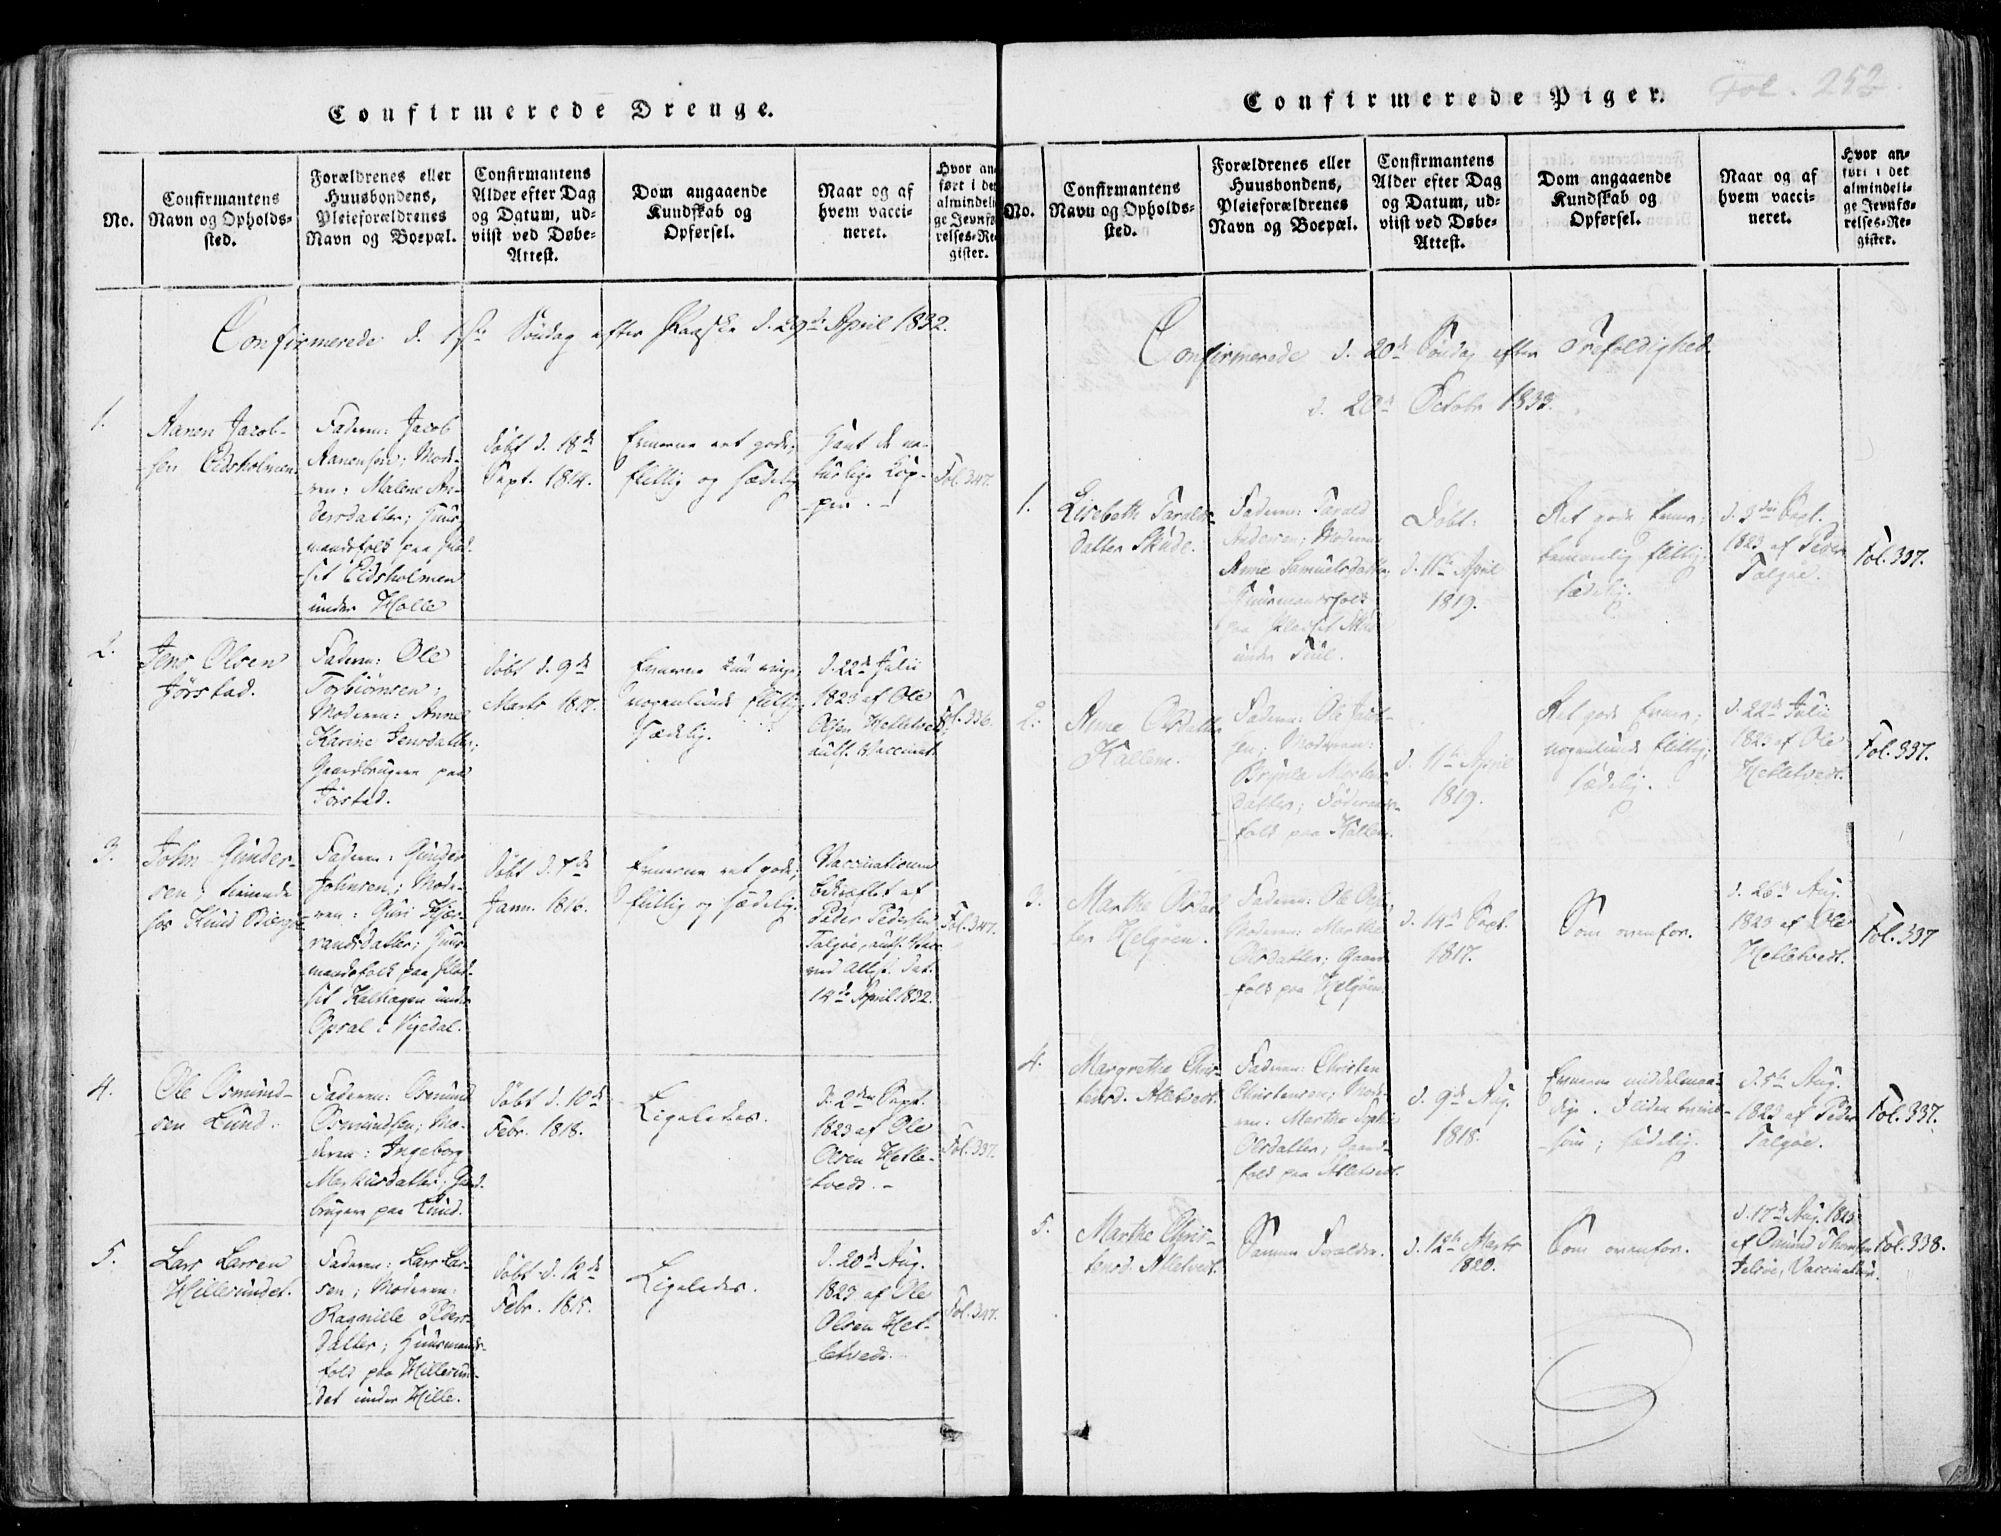 Confirmerede Drenge.
No.
Confirmantens
Navn og Opholds-
sted.
Forældrenes eller
Huusbondens,
Pleieforældrenes
Navn og Boepæl.
Confirmantens
Alder efter Dag
og Datum, ud-
viist ved Døbe-
Attest.
Dom angaaende
Kundskab og
Opførsel.
Naar og af
hvem vacci-
neret.
Hvor an
ført i de
almindeli
ge Jevnfø
relses-Re
gister.
Confirmerede d. 1ste Søndag efter Paaske d. 29de April 1832.
1.
Aanen Jacob-
sen Eidsholmen
Faderen: Jacob
Aanensen; Mode-
ren: Malene An-
dersdatter; Huus-
mandsfolk paa Plad-
set Eidsholmen
under Holle
døbt d. 18de
Sept. 1814.
Evnerne ret gode;
flittig og sædelig
Havt de na-
turlige Kop-
per. -
Fol. 347.
2.
Jens Olsen
Jørstad.
Faderen: Ole
Torbiørnsen;
Moderen: Anne
Karine Jensdatter;
Gaardbrugere paa
Jørstad.
døbt d. 9de
Marts 1817.
Evnerne kun ringe;
nogenlunde flittig;
sædelig.
d. 22de Julii
1823 af Ole
Olsen Hetletvedt,
auth. Vaccinat.
Fol. 336.
3.
John Gunder-
sen, tienende
hos Knud
Faderen: Gunder
Johnsen; Mode-
ren: Guri
randsdatter; Huus-
mandsfolk paa Plad-
set Kalhagen under
Opsal i Vigedal.
døbt d. 7de
Janu. 1816.
Evnerne ret gode;
flittig og sædelig.
Vaccinationen
bekræftet af
Peder Pedersen
Talgøe, auth. Vac.
ved Attest dat.
14de April 1832.
Fol. 347.
4.
Ole Osmund-
sen Lund.
Faderen: Osmund
Osmundsen; Mo-
deren: Ingeborg
Markusdatter; Gaard-
brugere paa Lund.
døbt d. 10de
Febr. 1818.
Ligeledes.
d. 2den Sept.
1823 af Ole
Olsen Hetle-
tvedt. -
Fol. 337.
5.
Lars Larsen
Hillesundet.
Faderen: Lars Lar-
sen; Moderen:
Ragnille Peders-
datter; Huusmands-
folk paa Hillesun-
det under Hille.
døbt d. 12de
Febr. 1815.
Ligeledes.
d. 20de Aug.
1823 af Ole
Olsen Het-
letvedt.
Fol. 347.
Confirmerede Piger.
Fol. 252.
No.
Confirmantens
Navn og Opholds-
sted.
Forældrenes eller
Huusbondens,
Pleieforældrenes
Navn og Boepæl.
Confirmantens
Alder efter Dag
og Datum, ud-
viist ved Døbe-
Attest.
Dom angaaende
Kundskab og
Opførsel.
Naar og af
hvem vacci-
neret.
Hvor an-
ført i det
almindeli-
ge Jevnfø-
relses-Re-
gister.
Confirmerede d. 20de Søndag efter Trefoldighed
d. 20de Octobr 1833.
1.
Lisebeth Taralds-
datter Skude.
Faderen: Tarald
Andersen; Moderen
Anne Samuelsdatter;
Huusmandsfolk
paa Pladset
under
Døbt:
d. 11te April
1819.
Ret gode Evner;
temmelig flittig;
sædelig.
d. 3die Sept.
1823 af Peder
Talgøe.
Fol. 337.
2.
Anne Olsdatter
Kallem.
Faderen: Ole
sen; Moderen:
Brynla Mortens-
datter; Føderaads-
folk paa Kallem.
d. 11te April
1819.
Ret gode Evner;
nogenlunde flittig;
sædelig.
d. 22de Julii
1823 af Ole
Hetletvedt.
Fol. 337.
3.
Marthe Olsdat-
ter Helgøen.
Faderen: Ole
Moderen: Marthe
Olsdatter; Gaard-
folk paa Helgøen.
d. 14de Sept.
1817.
Som ovenfor.
d. 26de Aug.
1823 af Ole
Hetletvedt.
Fol. 337
4.
Margrethe Chris-
tensd. Atletvedt.
Faderen: Christen
Christensen; Mode-
ren: Marthe
Olsdatter; Gaard-
folk paa Atletvedt.
d. 9de Aug.
1818.
Evnerne middelmaa-
dige.
som; sædelig.
d. 5te Aug.
1823 af Peder
Talgøe.
Fol. 337.
5.
Marthe Chris-
tensd. Atletvedt.
Samme Forældre.
d. 12te Marts
1820.
Som ovenfor.
d. 17de Aug. 1823
af Osmund
Vaccinatør.
Fol. 338.